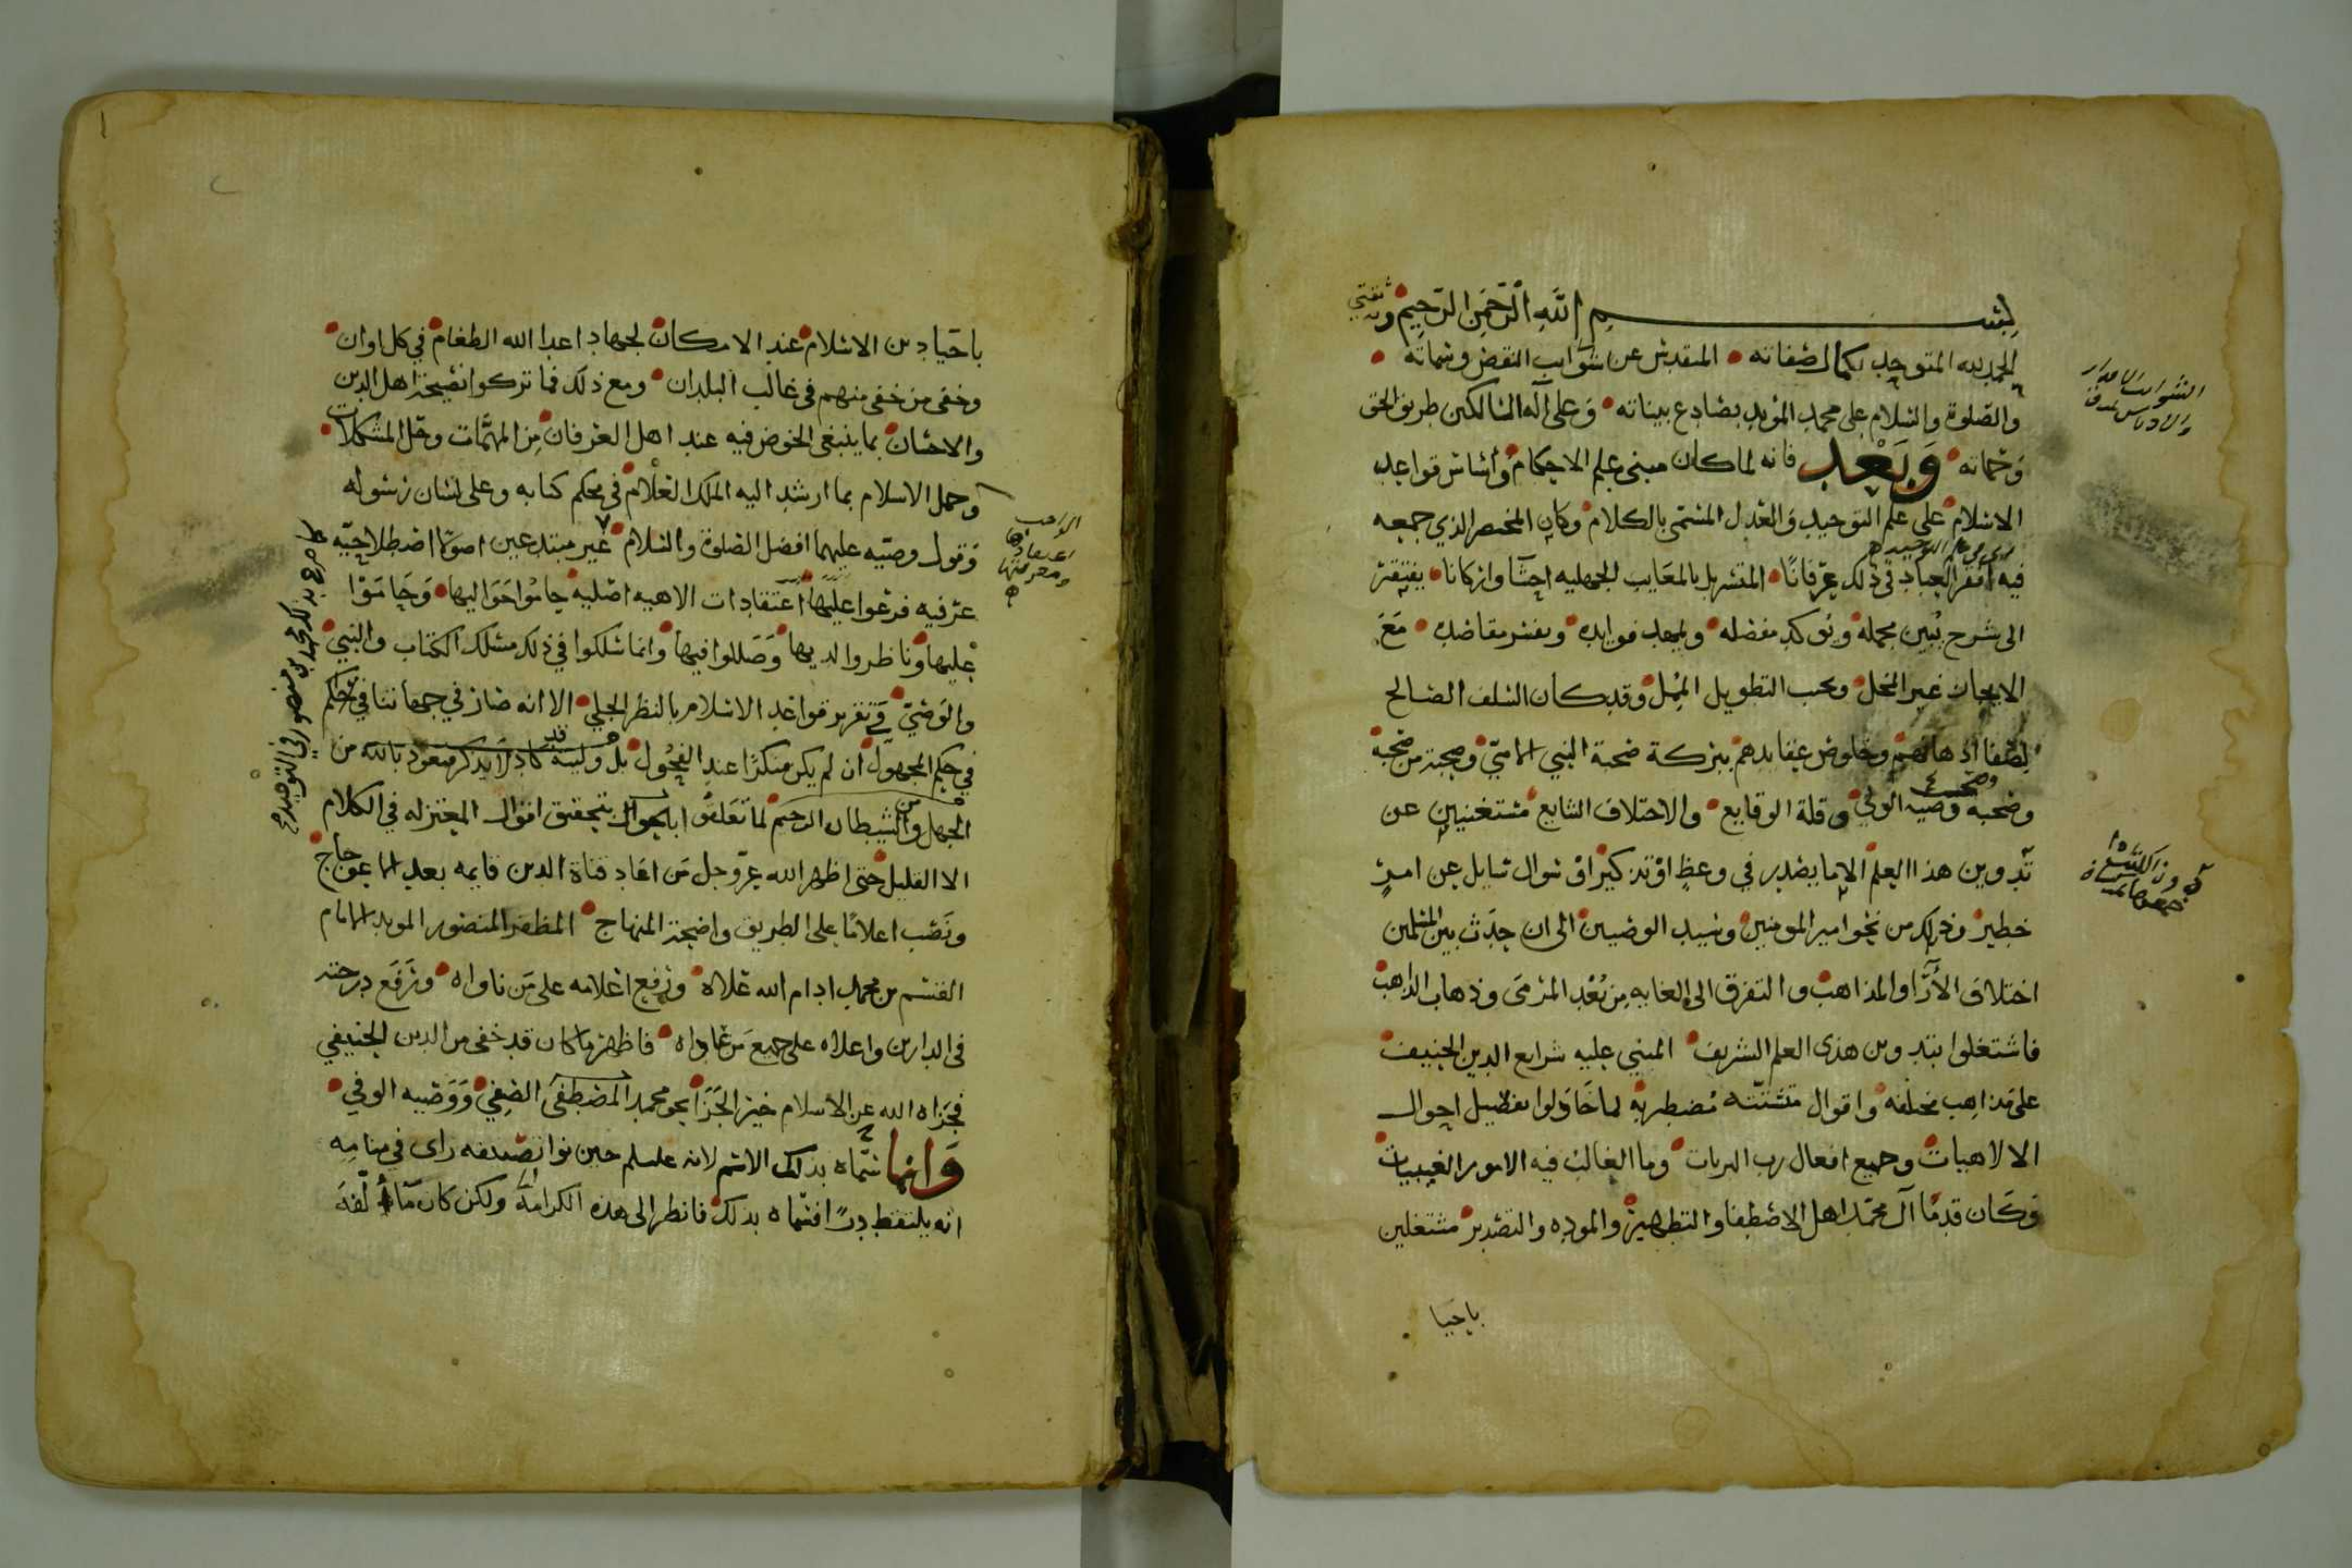 بسم الله الرحمن الرحيم وبه ثقتي
الحمد لله المتوحد بكمال صفاته المتقدس عن شوايب النقص وسماته
والصلوة والسلام على محمد المؤيد بصادع بيناته وعلى آله السالكين طريق الحق
وحماته وبعد فانه لما كان مبنى علم الاحكام واساس قواعد
الاسلام على علم التوحيد والعدل المسمى بالكلام وكان المختصر الذي جمعه
فيه أفقر العباد في ذلك عرفانا المتسربل بالمعايب الجهليه احسا واركانا يفتقر
الى شرح يبين مجمله ويؤكد مفصله ويمهد فوايده ويفسر مقاصده مع
الايجاز غير المخل وتجنب التطويل الممل وقد كان السلف الصالح
لصفا اذهانهم وخلوص عقايدهم ببركة صحبة النبي الامي وصحبة من صحبه
وصحبة وصيه الولي وقلة الوقايع والاختلاف الشايع مستغنيين عن
تدوين هذا العلم الا ما يصدر في وعظ او تذكير او سوال سايل عن امر
خطير وذلك من نحو امير المومنين وسيد الوصيين الى ان حدث بين المسلمين
اختلاف الأرآ والمذاهب والتفرق الى الغايه من بعد المرمى وذهاب الذاهب
فاشتغلوا بتدوين هذى العلم الشريف المبني عليه شرايع الدين الحنيف
على مذاهب مختلفه واقوال متشتته مضطربه لما حاولوا تفصيل احوال
الالاهيات وجميع افعال رب البريات وما الغالب فيه الامور الغيبيات
وكان قدمآ آل محمد اهل الاصطفا والتطهير والموده والتصدير مشتغلين
باحيا
باحيا دين الاسلام عند الامكان لجهاد اعدا الله الطغام في كل اوان
وخفى من خفى منهم في غالب البلدان ومع ذلك فما تركوا نصيحة اهل الدين
والاحسان بما ينبغي الخوض فيه عند اهل العرفان من المهمات وحل المشكلات
وحمل الاسلام بما ارشد اليه الملك العلام في محكم كتابه وعلى لسان رسوله
وقول وصيه عليهما افضل الصلوة والسلام غير مبتدعين اصولا اصطلاحيه
عرفيه فرعوا عليها اعتقادات الاهيه اصليه حاموا حواليها وحاموا
عليها وناظروا لديها وضللوا فيها وانما سلكوا في ذلك مسلك الكتاب والنبي
والوصي في تقرير قواعد الاسلام بالنظر الجلي الا انه صار في جهاتنا في حكم
في حكم المجهول ان لم يكن منكرا عند الفحول بل وليته كاد لا يذكر فنعوذ بالله من
الجهل ومن الشيطان الرجيم لما تعلق
الا القليل حتى اظهر الله عز وجل من اقاد قناة الدين قايمه بعد الاعوجاج
ونصب اعلاما على الطريق واضحة المنهاج المظفر المنصور المويد الامام
القسم بن محمد ادام الله علاه ورفع اعلامه على من ناواه ورفع درجته
في الدارين واعلاه على جميع من عاداه فاظهر ما كان قد خفى من الدين الحنيفي
فجزاه الله عن الاسلام خير الجزا بحق محمد المصطفى الصفي ووصيه الوفي
وانما سماه بذلك الاسم لانه عليسلم حين نوا تصنيفه راى في منامه
انه يلتقط درًا فسماه بذلك فانظر الى هذه الكرامة ولكن كان ما ألفه
كما صرح بذلك محمد بن منصور في التوحيد